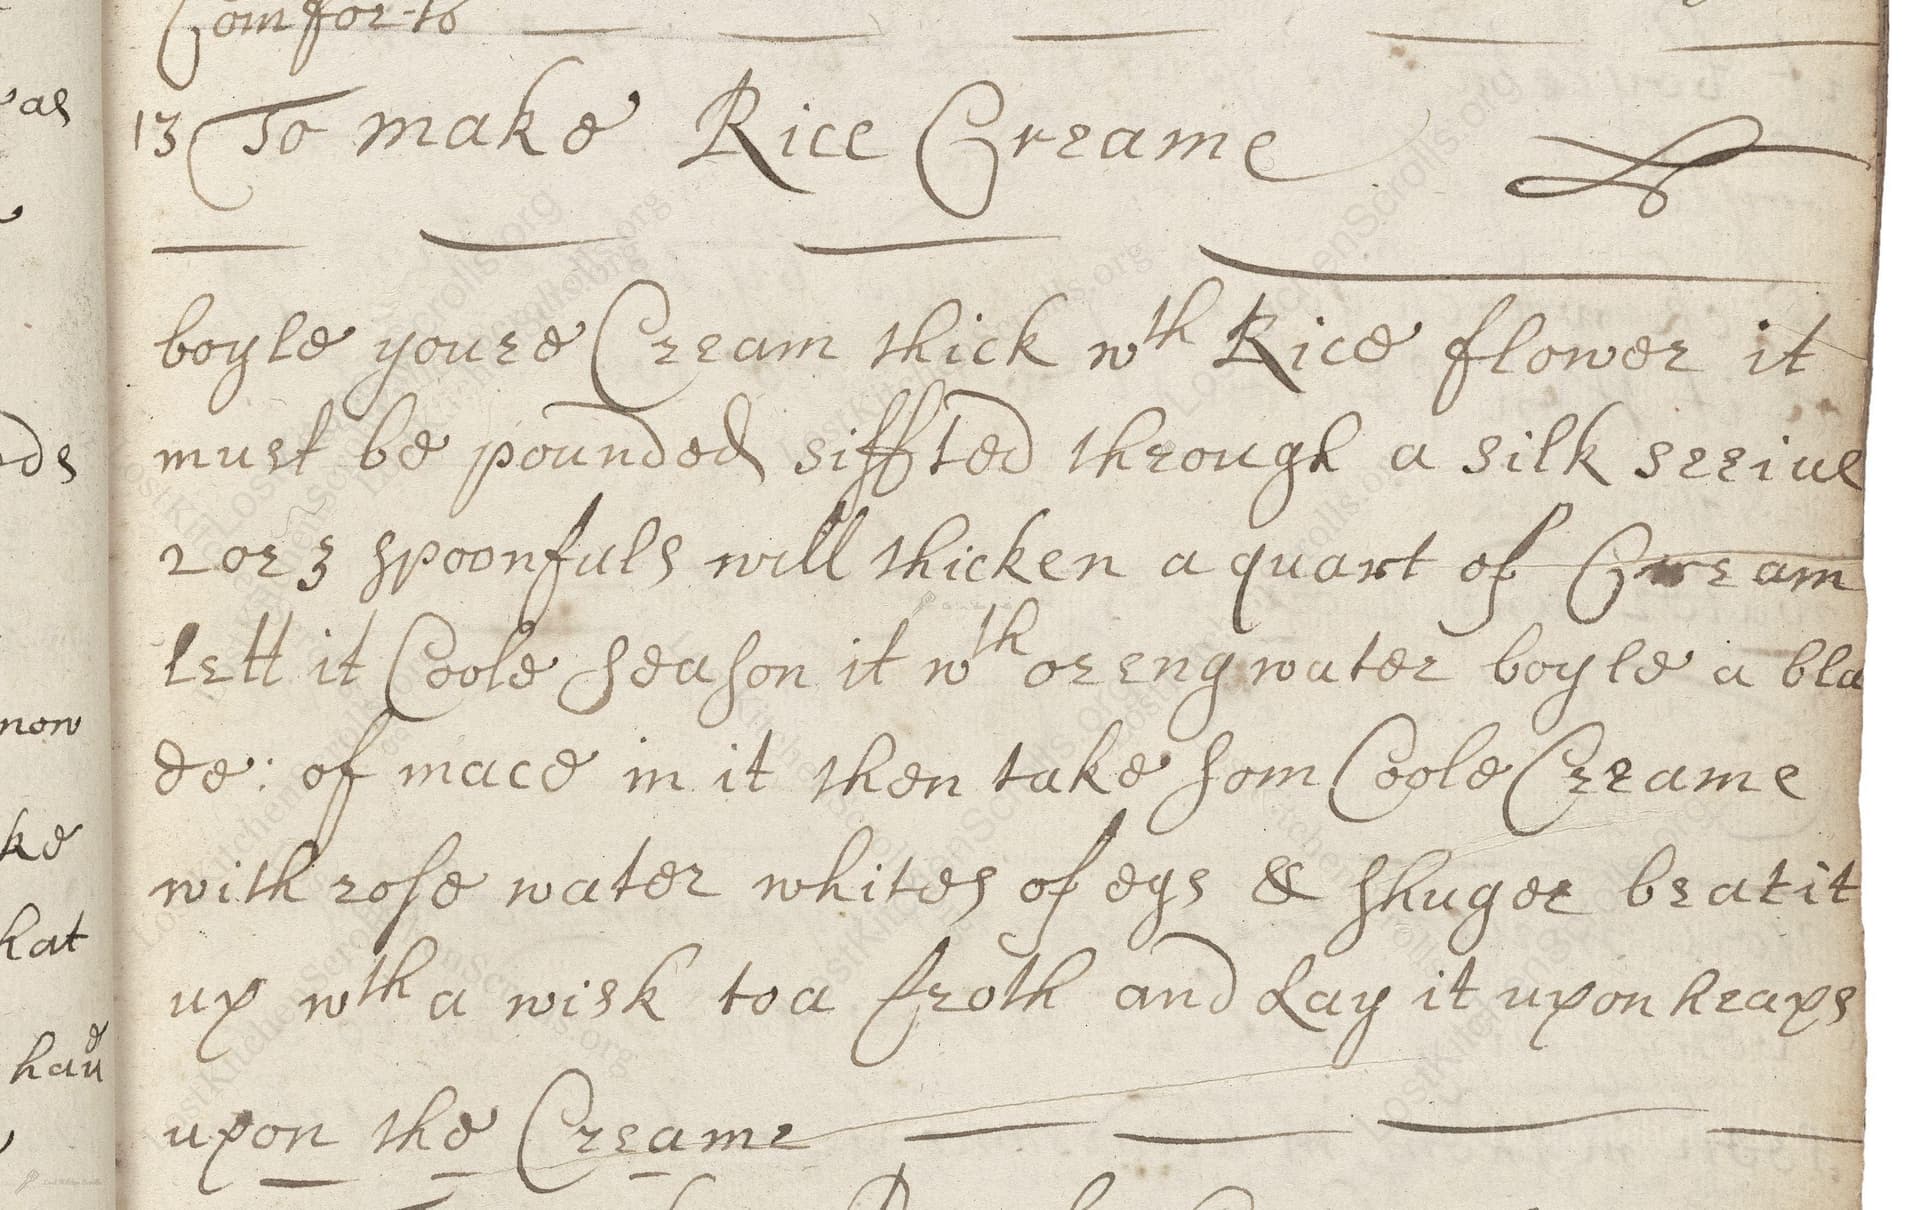 Comforts
13 To make Rice Creame
boyle youre Cream thick wth Rice flower it
must be pounded siffted through a silk seeiue
2 or 3 spoonfuls will thicken a quart of Cream
lett it Coole season it wth oreng water boyle a bla
de: of mace in it then take som Coole Creame
with rose water whites of egs & shuger beat it
up wth a wisk to a froth and Lay it upon heaps
upon the Creame